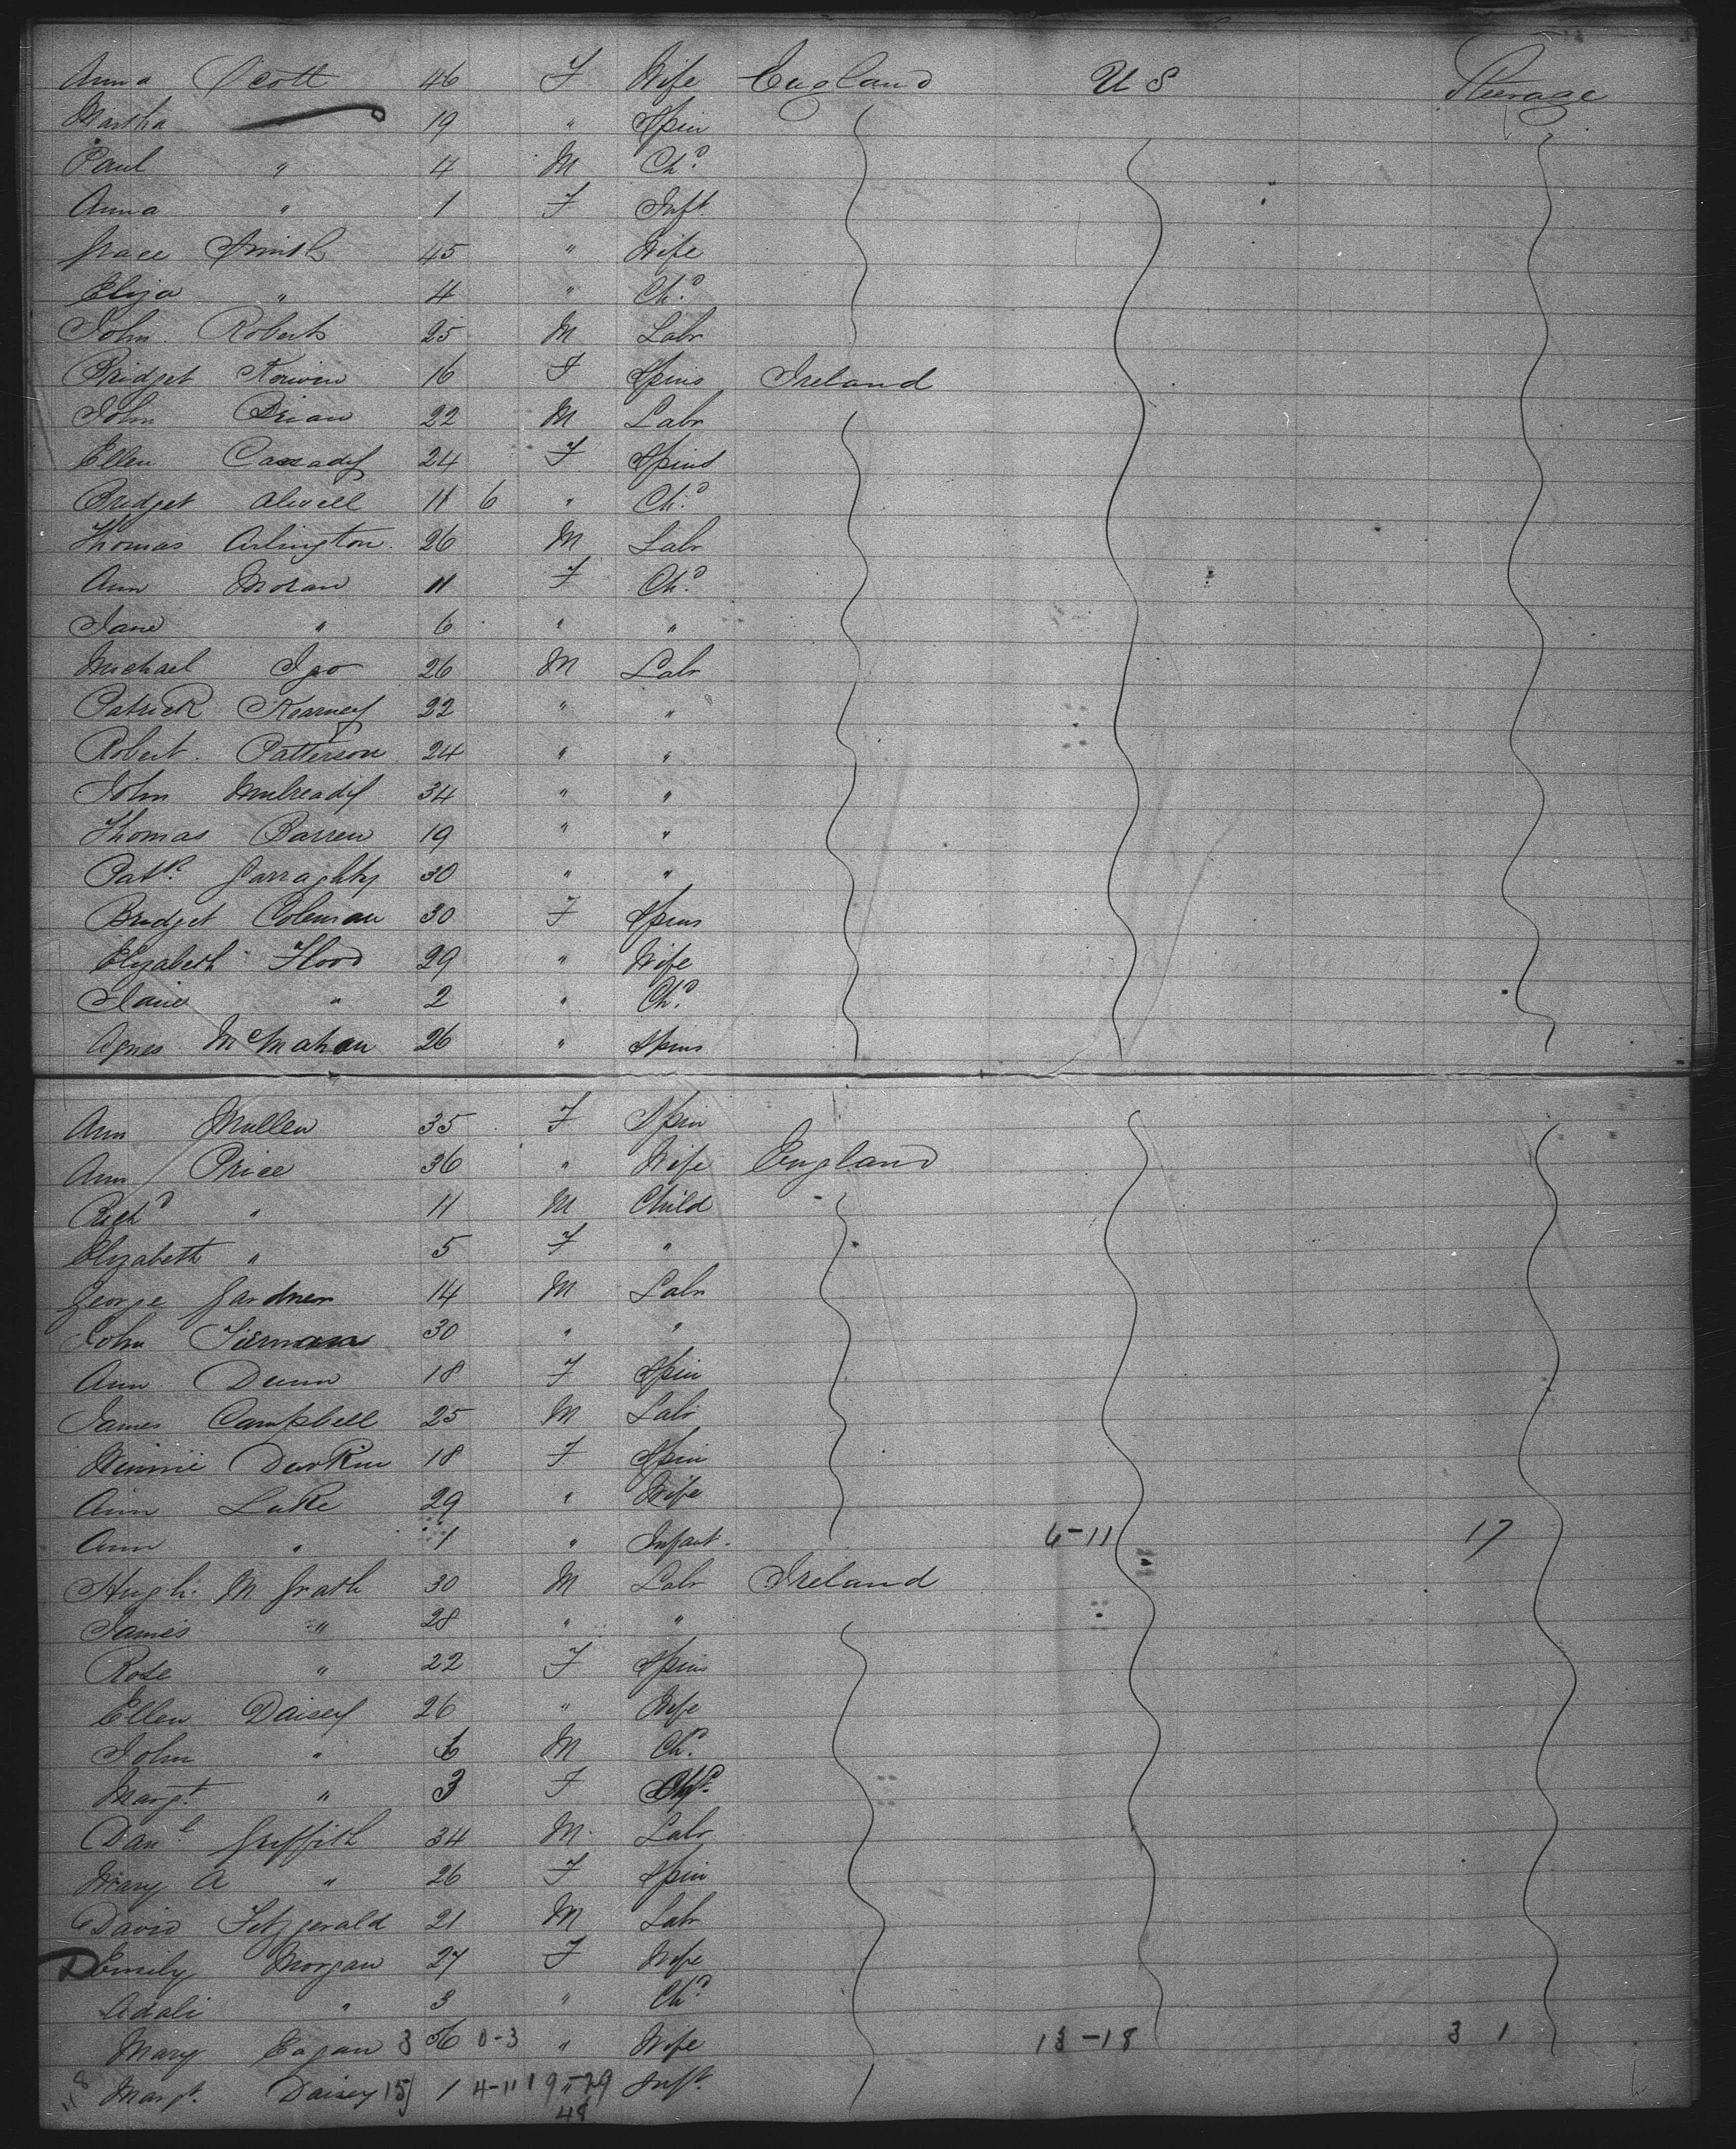 Anna Scott 46 F Wife England U S Steerage
Martha 19 " Spin
Paul " 4 M Chd
Anna " 1 F Inft
Grace Smith 45 " Wife
Eliza " 4 " Chd
John Roberts 25 M Labr
Bridget Kerwin 16 F Spins Ireland
John Brian 22 M Labr
Ellen Cassady 24 F Spins
Bridget 11 6 " Chd
Thomas Arlington 26 M Labr
Ann Moran 11 F Chd
Jane " 6 " "
Michael Igo 26 M Labr
Patrick Kearney 22 " "
Robert Patterson 24 " "
John Mulready 34 " "
Thomas Barren 19 " "
Patk Garraghty 30 " "
Bridget Coleman 30 F Spins
Elizabeth Flood 29 " Wife
" 2 " Chd
Agnes McMahan 26 " Spins
Ann Mullen 35 F Spin
Ann Price 36 " Wife England
Richd " 11 M Child
Elizabeth " 5 F "
George Gardner 14 M Labr
John 30 " "
Ann Dunn 18 F Spin
James Campbell 25 M Labr
Minnie Durkin 18 F Spin
Ann Luke 29 " Wife
Ann " 1 " Infant 6-11 17
Hugh McGrath 30 M Labr Ireland
James " 28 " "
Rose " 22 F Spins
Ellen Daisey 26 " Wife
John " 6 M Chd
Margt " 3 F Chd
Danl Griffith 34 M Labr
Mary A " 26 F Spin
David Fitzgerald 21 M Labr
Emily Morgan 27 F Wife
" 3 " Chd
Mary Eagan 3 56 0-3 " Wife 13-18 3 1
Margt Daisey 15 1 4-11 19-29 Inft
48